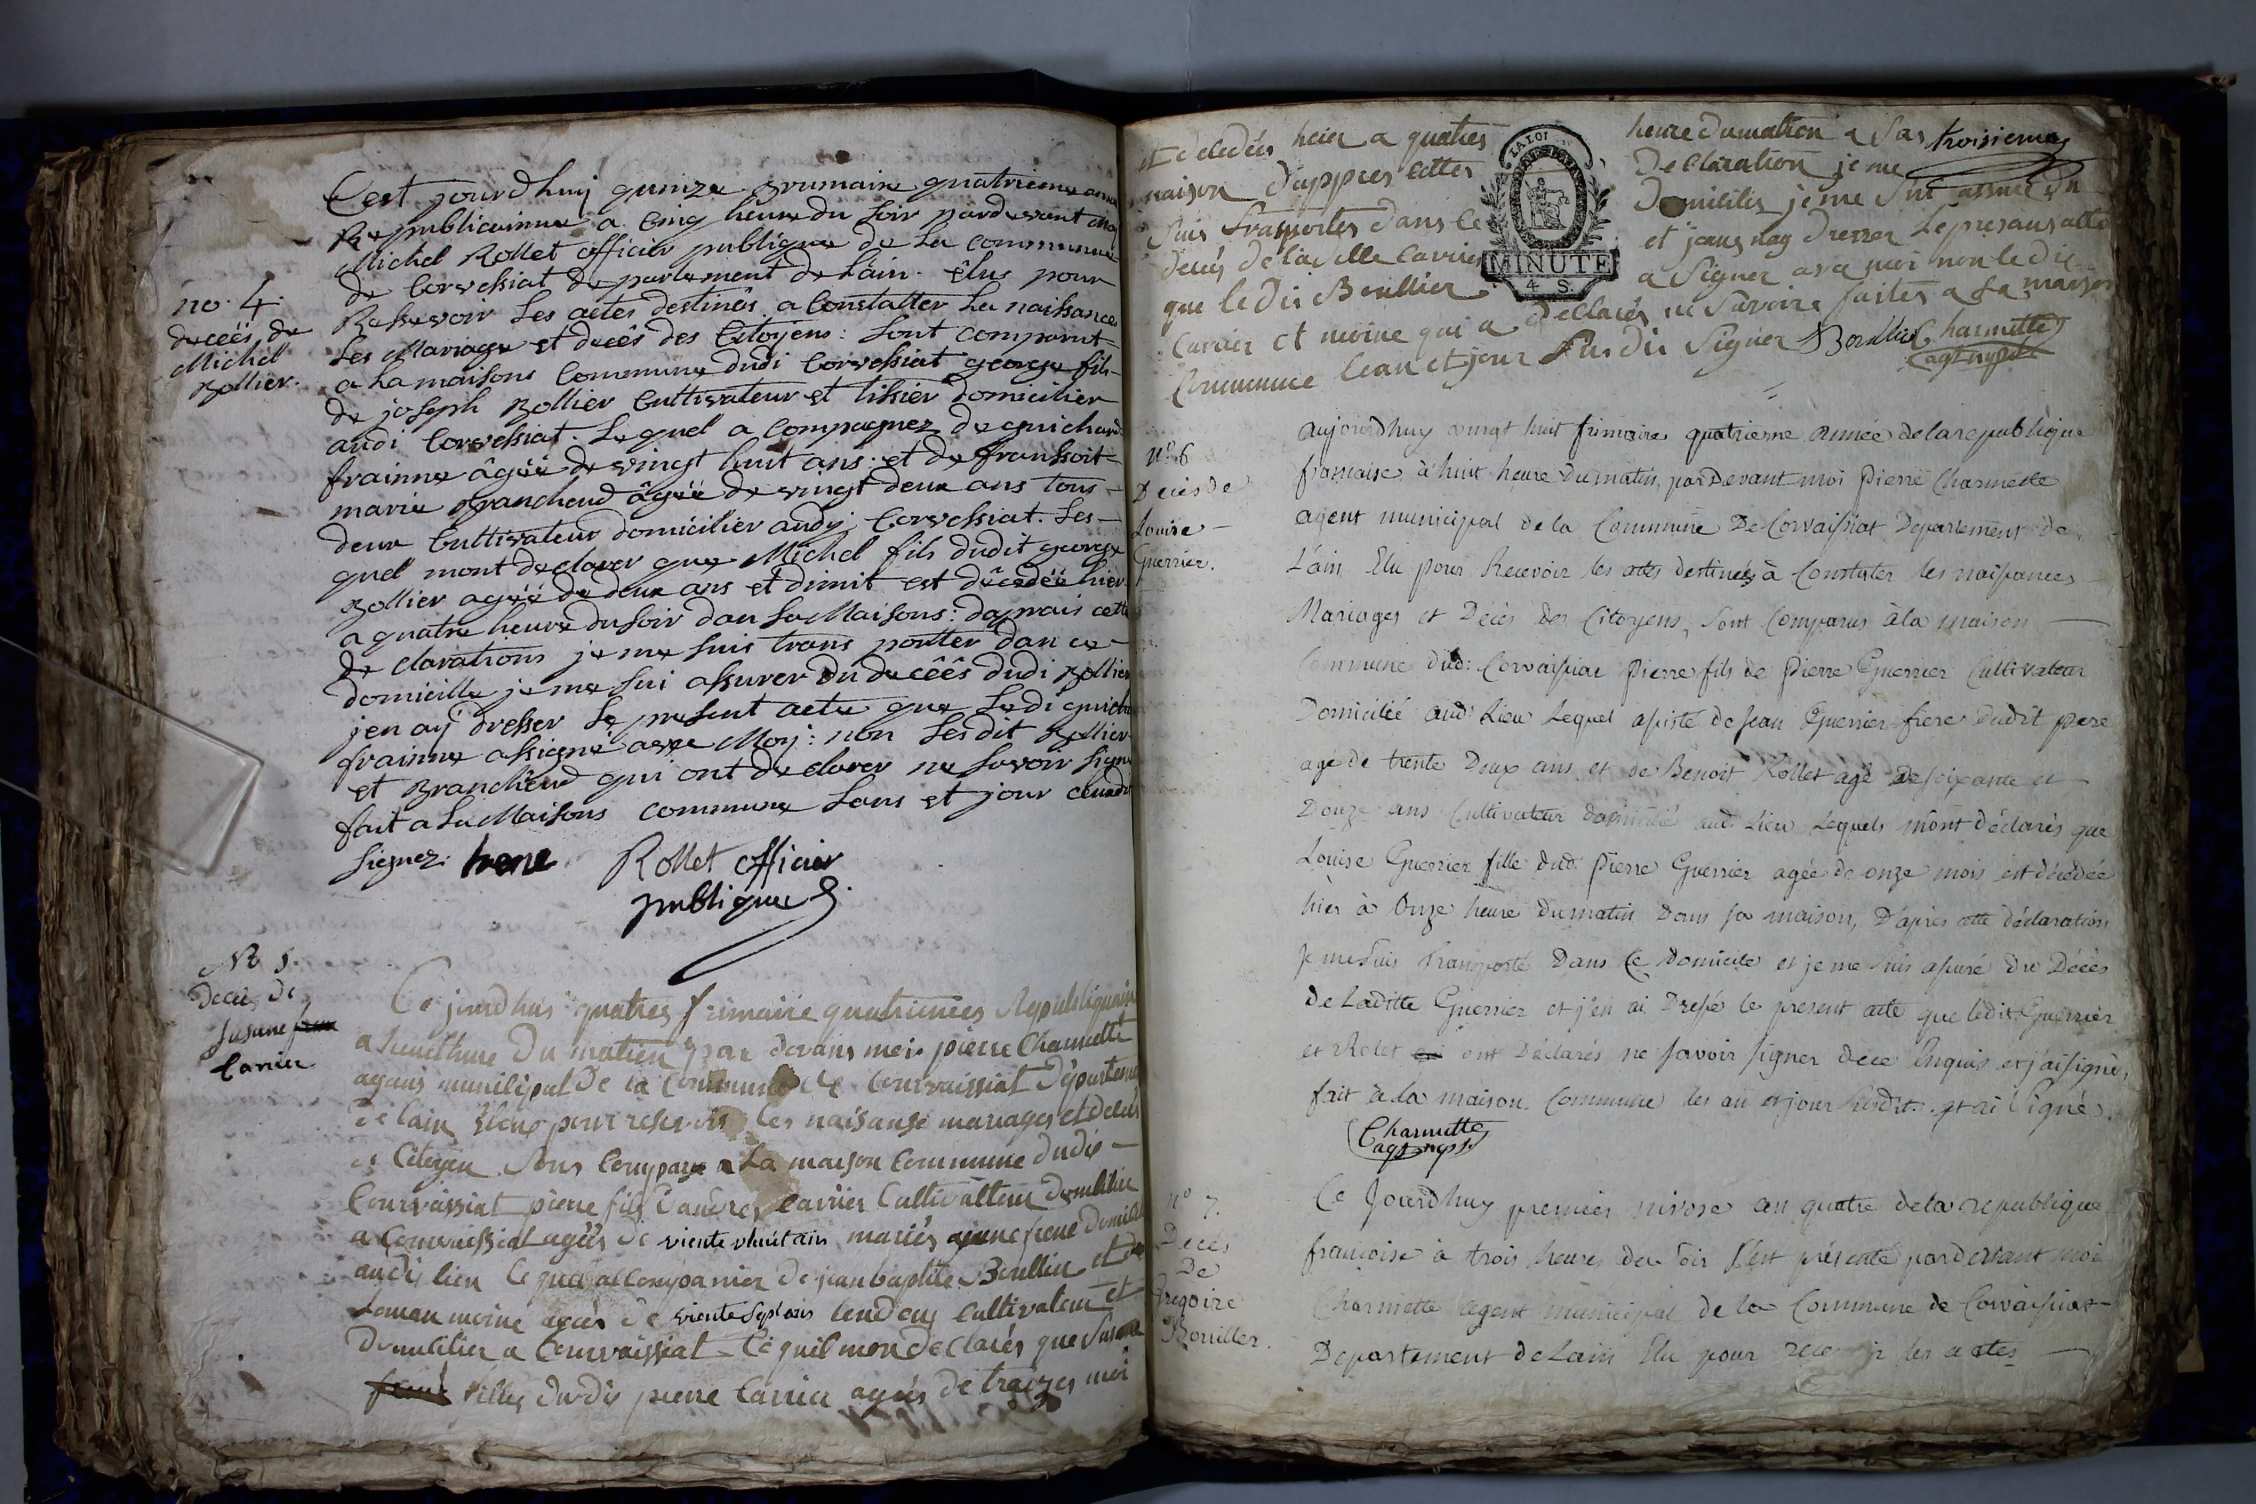 C'est jourd'huy quinze Brumaire quatrieme anné
Republicainne a Cinq heure du soir pardevant moy
Michel Rollet officier publique de La commune
de Corvessiat departement de Lain. êlus pour
Ressevoir Les actes destinés a Constatter La naissances
Les Mariage et decês des Citoyens : sont comparut
a La maisons Commune dudi Corvessiat george fils
de joseph Bollier Cultivateur et tissier domicilier
audi Corvessiat. Lequel a Compagnez de guichard
frainne âgéé de vingt huit ans. et de franssoit
marie Branchend âgéé de vingt deux ans tous
deux Cultivateur domicilier audy Corvessiat. Les
quel mont declarer que Michel fils dudit george
Bollier agéé de deux ans et dimit est dêcedéé hier
a quatre heure du soir dan sa Maisons : daprais cette
declarations je me suis trans porter dan ce
domicille je me sui assurer du decêês dudi Bollier
jen aÿ dresser Le present acte que Ledi guichar
frainne assigné avec Moy : non Lesdit Bollier
et Branchend qui ont declarer ne savoir signe
fait a La Maisons commune Lans et jour cendi
signez : frene Rollet officier
publique
no. 4.
deceés de
Michel
Bollier.
No 5.
Deces de
Susane frene
Carrier
Ce jourdhui quatres frimaire quatriemes Republiquain
a heur du matien par devans moi pierre Charmette
agans municipal De la Commune de Courvaissiat Départeme
De lain Eleux pour reservoir les naisanse mariages et deces
es Citoyen Sons Compare a La maison Commune dudis
Courvaissiat pierre fils Candres Carrier Cultivatteur domicilie
a Courvaissiat agéés de viente vhuit ans mariés a jeune frene Domicili
audis lien Ce quel accompanier de jean baptite Boullier et de
Roman moine agées de viente sept ans tendeux Cultivateur et
Domicilier a Courvaissiat Ce quil mon de Clarés que Susane
frené filles dudis pierre Carrier agées de traizes moi
et dcledées heier a quatres heure dumation a Sas troisiemes
maison dappres cettes Declaration je me
suis trasportes dans le Domicilis je me sui assuré du
deces de la ditte Carrier et jeans nay dresser le presans atte
que le dis Boullier a Signer avec moi non le dis
Carrier et moine qui a declarés ne Savoire faites a la maison
Commune lean et jour Sus dis Signer Boullier Charmette
agt mpal
LA LOI
MINUTE
4 S.
No 6
Décès de
Louise
Guerrier.
aujourdhuy vingt huit frimaire quatrieme année de la republique
française à huit heure du matin, par Devant moi Pierre Charmette
agent municipal de la Commune De Corvaissiat Departement de
L'ain Elu pour Recevoir les actes destinés à Constater les naissances
Mariages et Décès des Citoyens, sont Comparus à la maison
Commune dud: Corvaissiat Pierre fils de Pierre Guerrier Cultivateur
Domicilié aud: Lieu Lequel assisté de Jean Guerrier frere dudit pere
age de trente Deux ans et de Benoit Rollet agé de soixante et
Douze ans Cultivateur domicilié aud: Lieu Lequels m'ont déclarés que
Louise Guerrier fille dud: Pierre Guerrier agée de onze mois est décédée
hier à Onze heure du matin Dans sa maison, D'après cette déclaration
Je me suis transporté Dans Ce Domicile et je me suis assuré du Décès
de Laditte Guerrier et j'en ai Dressé le present acte que ledit Guerrier
et Rolet qui ont Déclarés ne savoir signer de ce Enquis et j'ai signé,
fait à la maison Commune les an et jour susdit. et ai Signé.
Charmette
agt mpal
no 7.
Décès
De
Gregoire
Bouiller.
Ce Jourdhuy premier nivose an quatre de la republique
françoise à trois heures de soir s'est présenté pardevant moi
Charmette agent municipal de la Commune de Corvaissiat
Departement de Lain Elu pour recevoir les actes